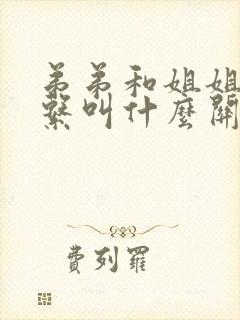 弟弟和姐姐
繫叫什麼關
費列羅